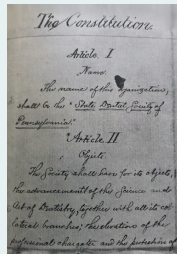 The Constitution.
Article I
Name.
The name of this organization,
shall be the "State Dental Society of
Pennsylvania."
Article II
Objects.
The Society shall have for its objects,
the advancement of the Science and
Art of Dentistry, together with all its col-
lateral branches; the elevation of the
professional character and the protection of